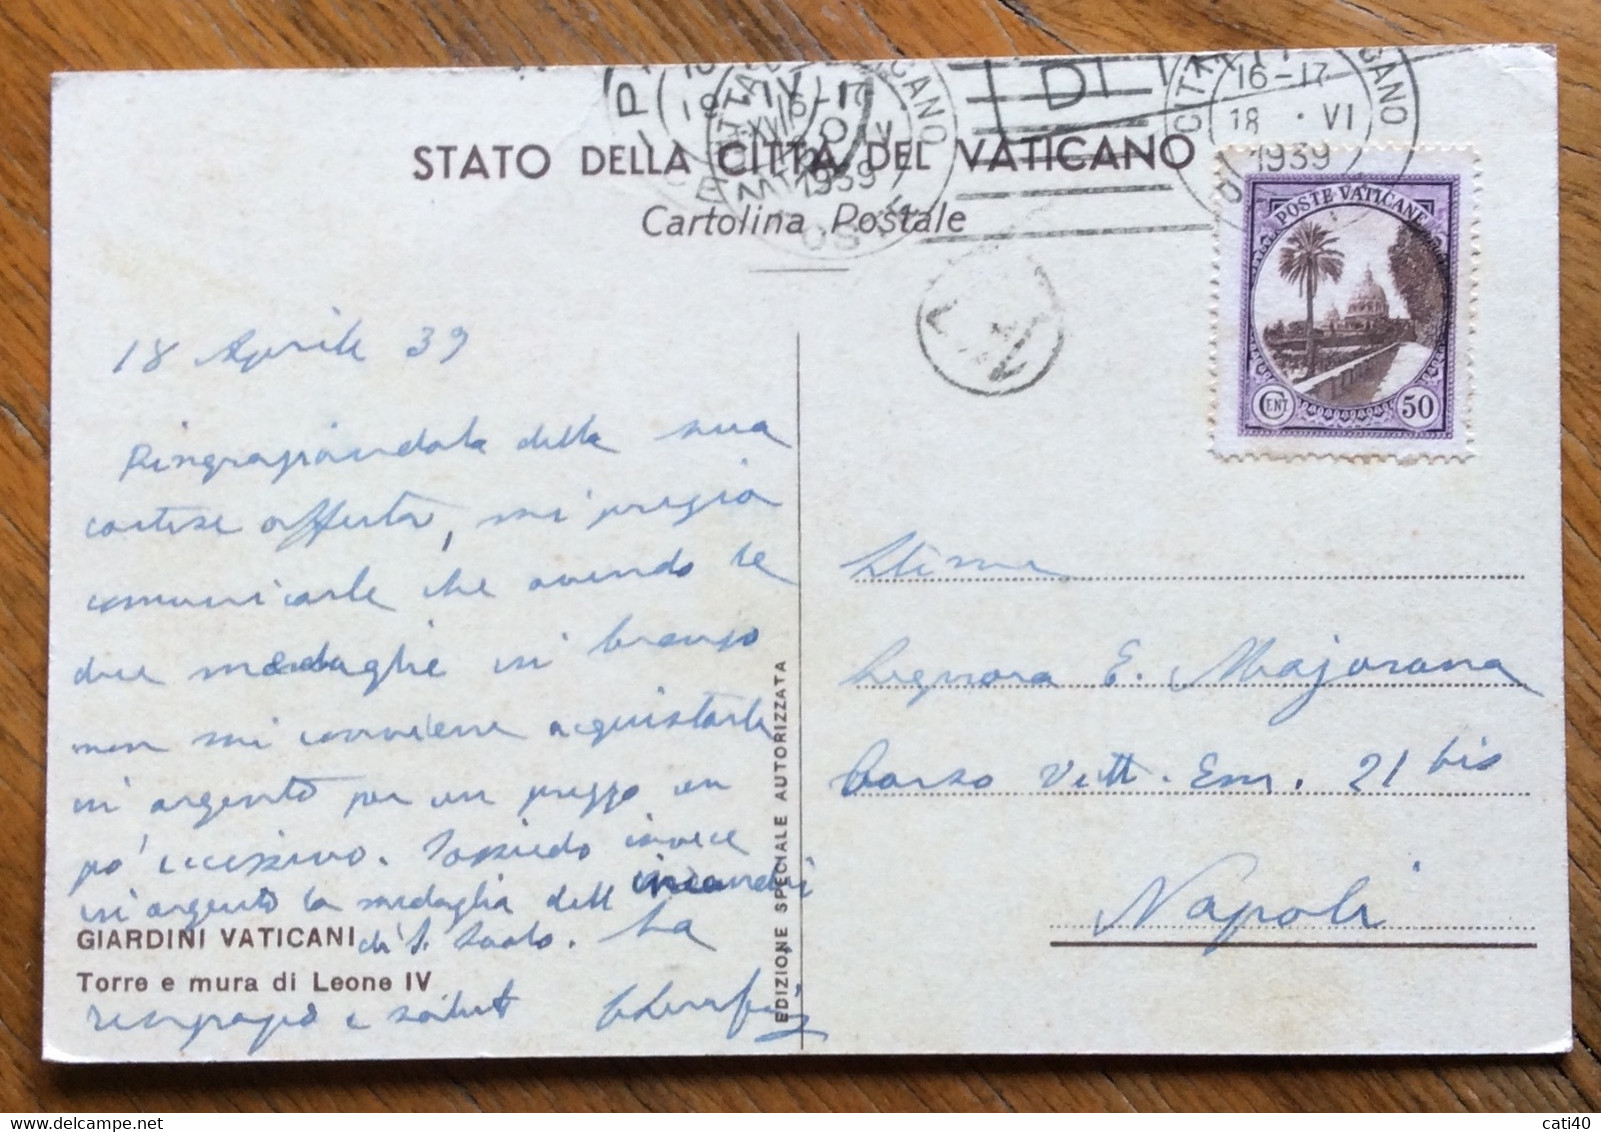 STATO DELLA CITTÀ DEL VATICANO
Cartolina Postale
CITTÀ
CANO
16-17
18 · VI
1939
DI
16-17
1939
POSTE VATICANE
CENT
50
18 Aprile 39
Ringraziandola della sua
cortese offerta, mi pregio
comunicarle che avendo le
due medaglie in bronzo
non mi conviene acquistarle
in argento per un prezzo un
po' eccessivo. Possiedo invece
in argento la medaglia dell'
di S. Paolo. La
ringrazio e saluto
GIARDINI VATICANI
Torre e mura di Leone IV
EDIZIONE SPECIALE AUTORIZZATA
Signora E. Majorana
Corso Vitt. Em. 21 bis
Napoli
cati40